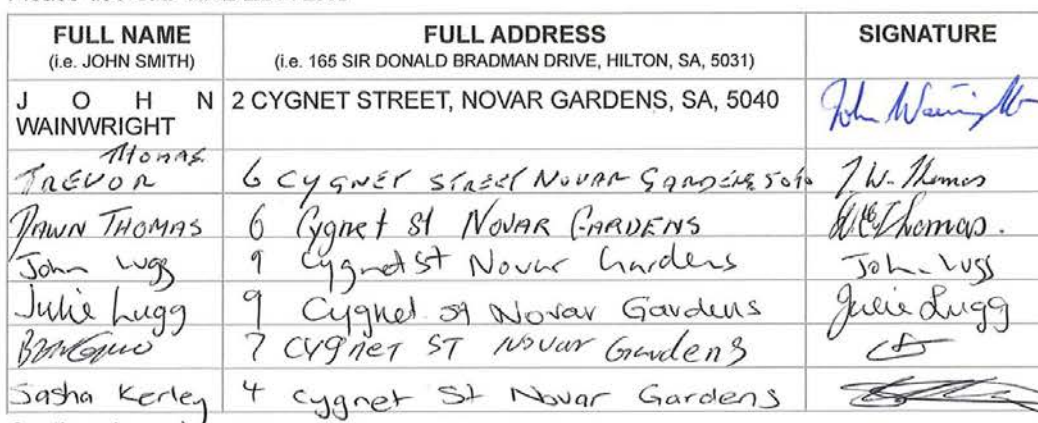 FULL NAME FULL ADDRESS SIGNATURE
(i.e. JOHN SMITH) (i.e. 165 SIR DONALD BRADMAN DRIVE, HILTON, SA, 5031)
J O H N 2 CYGNET STREET, NOVAR GARDENS, SA, 5040 John Wainwright
WAINWRIGHT
THOMAS
TREVOR 6 CYGNET STREET NOVAR GARDENS 5040 T.W. Thomas
DAWN THOMAS 6 Cygnet St NOVAR GARDENS Thomas.
John Lugg 9 Cygnet St Novar Gardens John Lugg
Julie Lugg 9 Cygnet St Novar Gardens Julie Lugg
7 CYGNET ST NOVAR Gardens
Sasha Kerley 4 Cygnet St Novar Gardens